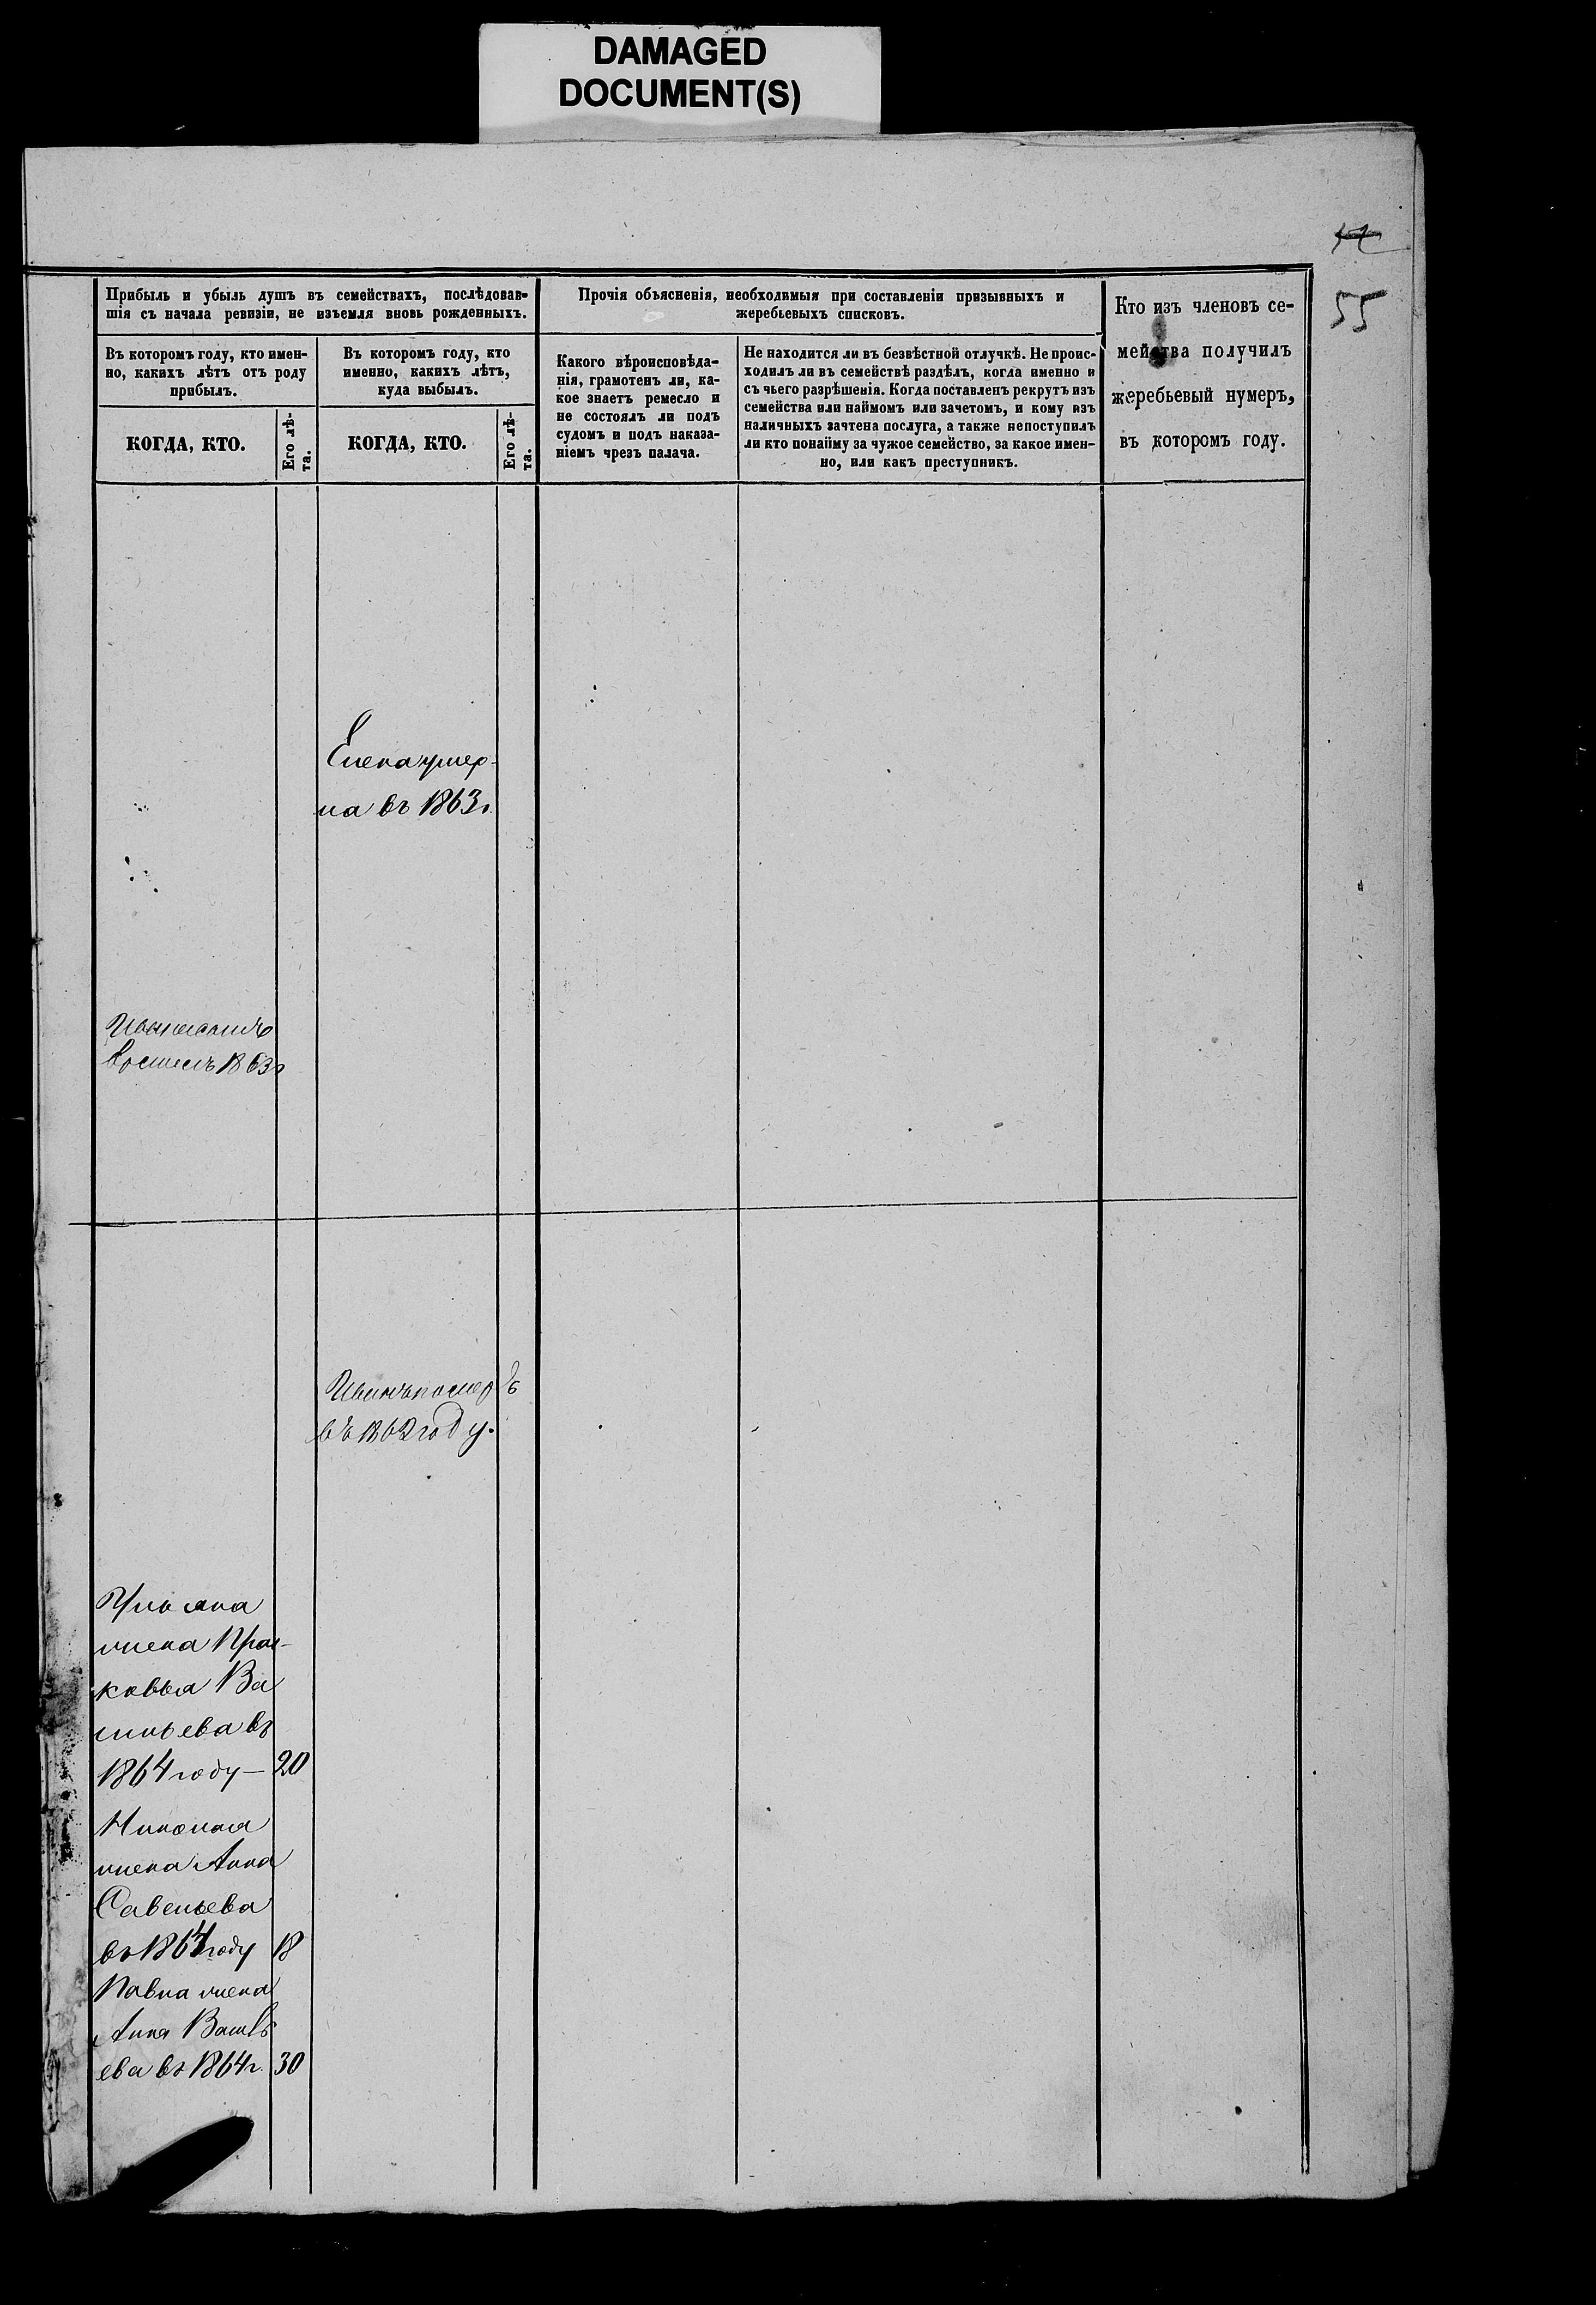 DAMAGED
DOCUMENT(S)
55
Прибыль и убыль душъ въ семействахъ, послѣдовав-
шія съ начала ревизіи, не изъемля вновь рожденныхъ.
Прочія объясненія, необходимыя при составленіи призывныхъ и
жеребьевыхъ списковъ.
Кто изъ членовъ се-
мейства получилъ
жеребьевый нумеръ,
въ которомъ году.
Въ которомъ году, кто имен-
но, какихъ лѣтъ отъ роду
прибылъ.
Въ которомъ году, кто
именно, какихъ лѣтъ,
куда выбылъ.
Какого вѣроисповѣда-
нія, грамотенъ ли, ка-
кое знаетъ ремесло и
не состоялъ ли подъ
судомъ и подъ наказа-
ніемъ чрезъ палача.
Не находится ли въ безвѣстной отлучкѣ. Не проис-
ходилъ ли въ семействѣ раздѣлъ, когда именно и
съ чьего разрѣшенія. Когда поставленъ рекрутъ изъ
семейства или наймомъ или зачетомъ, и кому изъ
наличныхъ зачтена послуга, а также непоступилъ
ли кто понайму за чужое семейство, за какое имен-
но, или какъ преступникъ.
КОГДА, КТО.
Его лѣ-
та.
КОГДА, КТО.
Его лѣ-
та.
Елена умер-
ла въ 1863г.
1863г
Иванъ померъ
въ 1862 году.
Ульяна
жена Прас-
ковья Ва
сильева въ
1864 году — 20
Николая
жена Анна
Савельева
въ 1864 году 18
Павла жена
Анна Василь
ева въ 1864г. 30